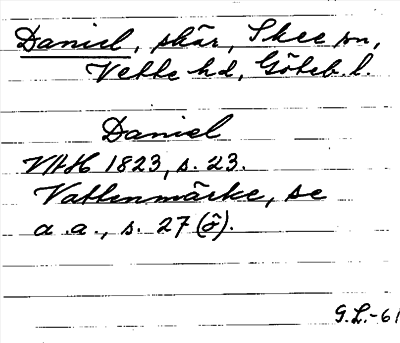 Daniel, skär, Skee sn,
Vette hd, Göteb. l.
Daniel
VAH 1823, s. 23.
Vattenmärke, se
a.a., s. 27 (ö).
G.L.-61